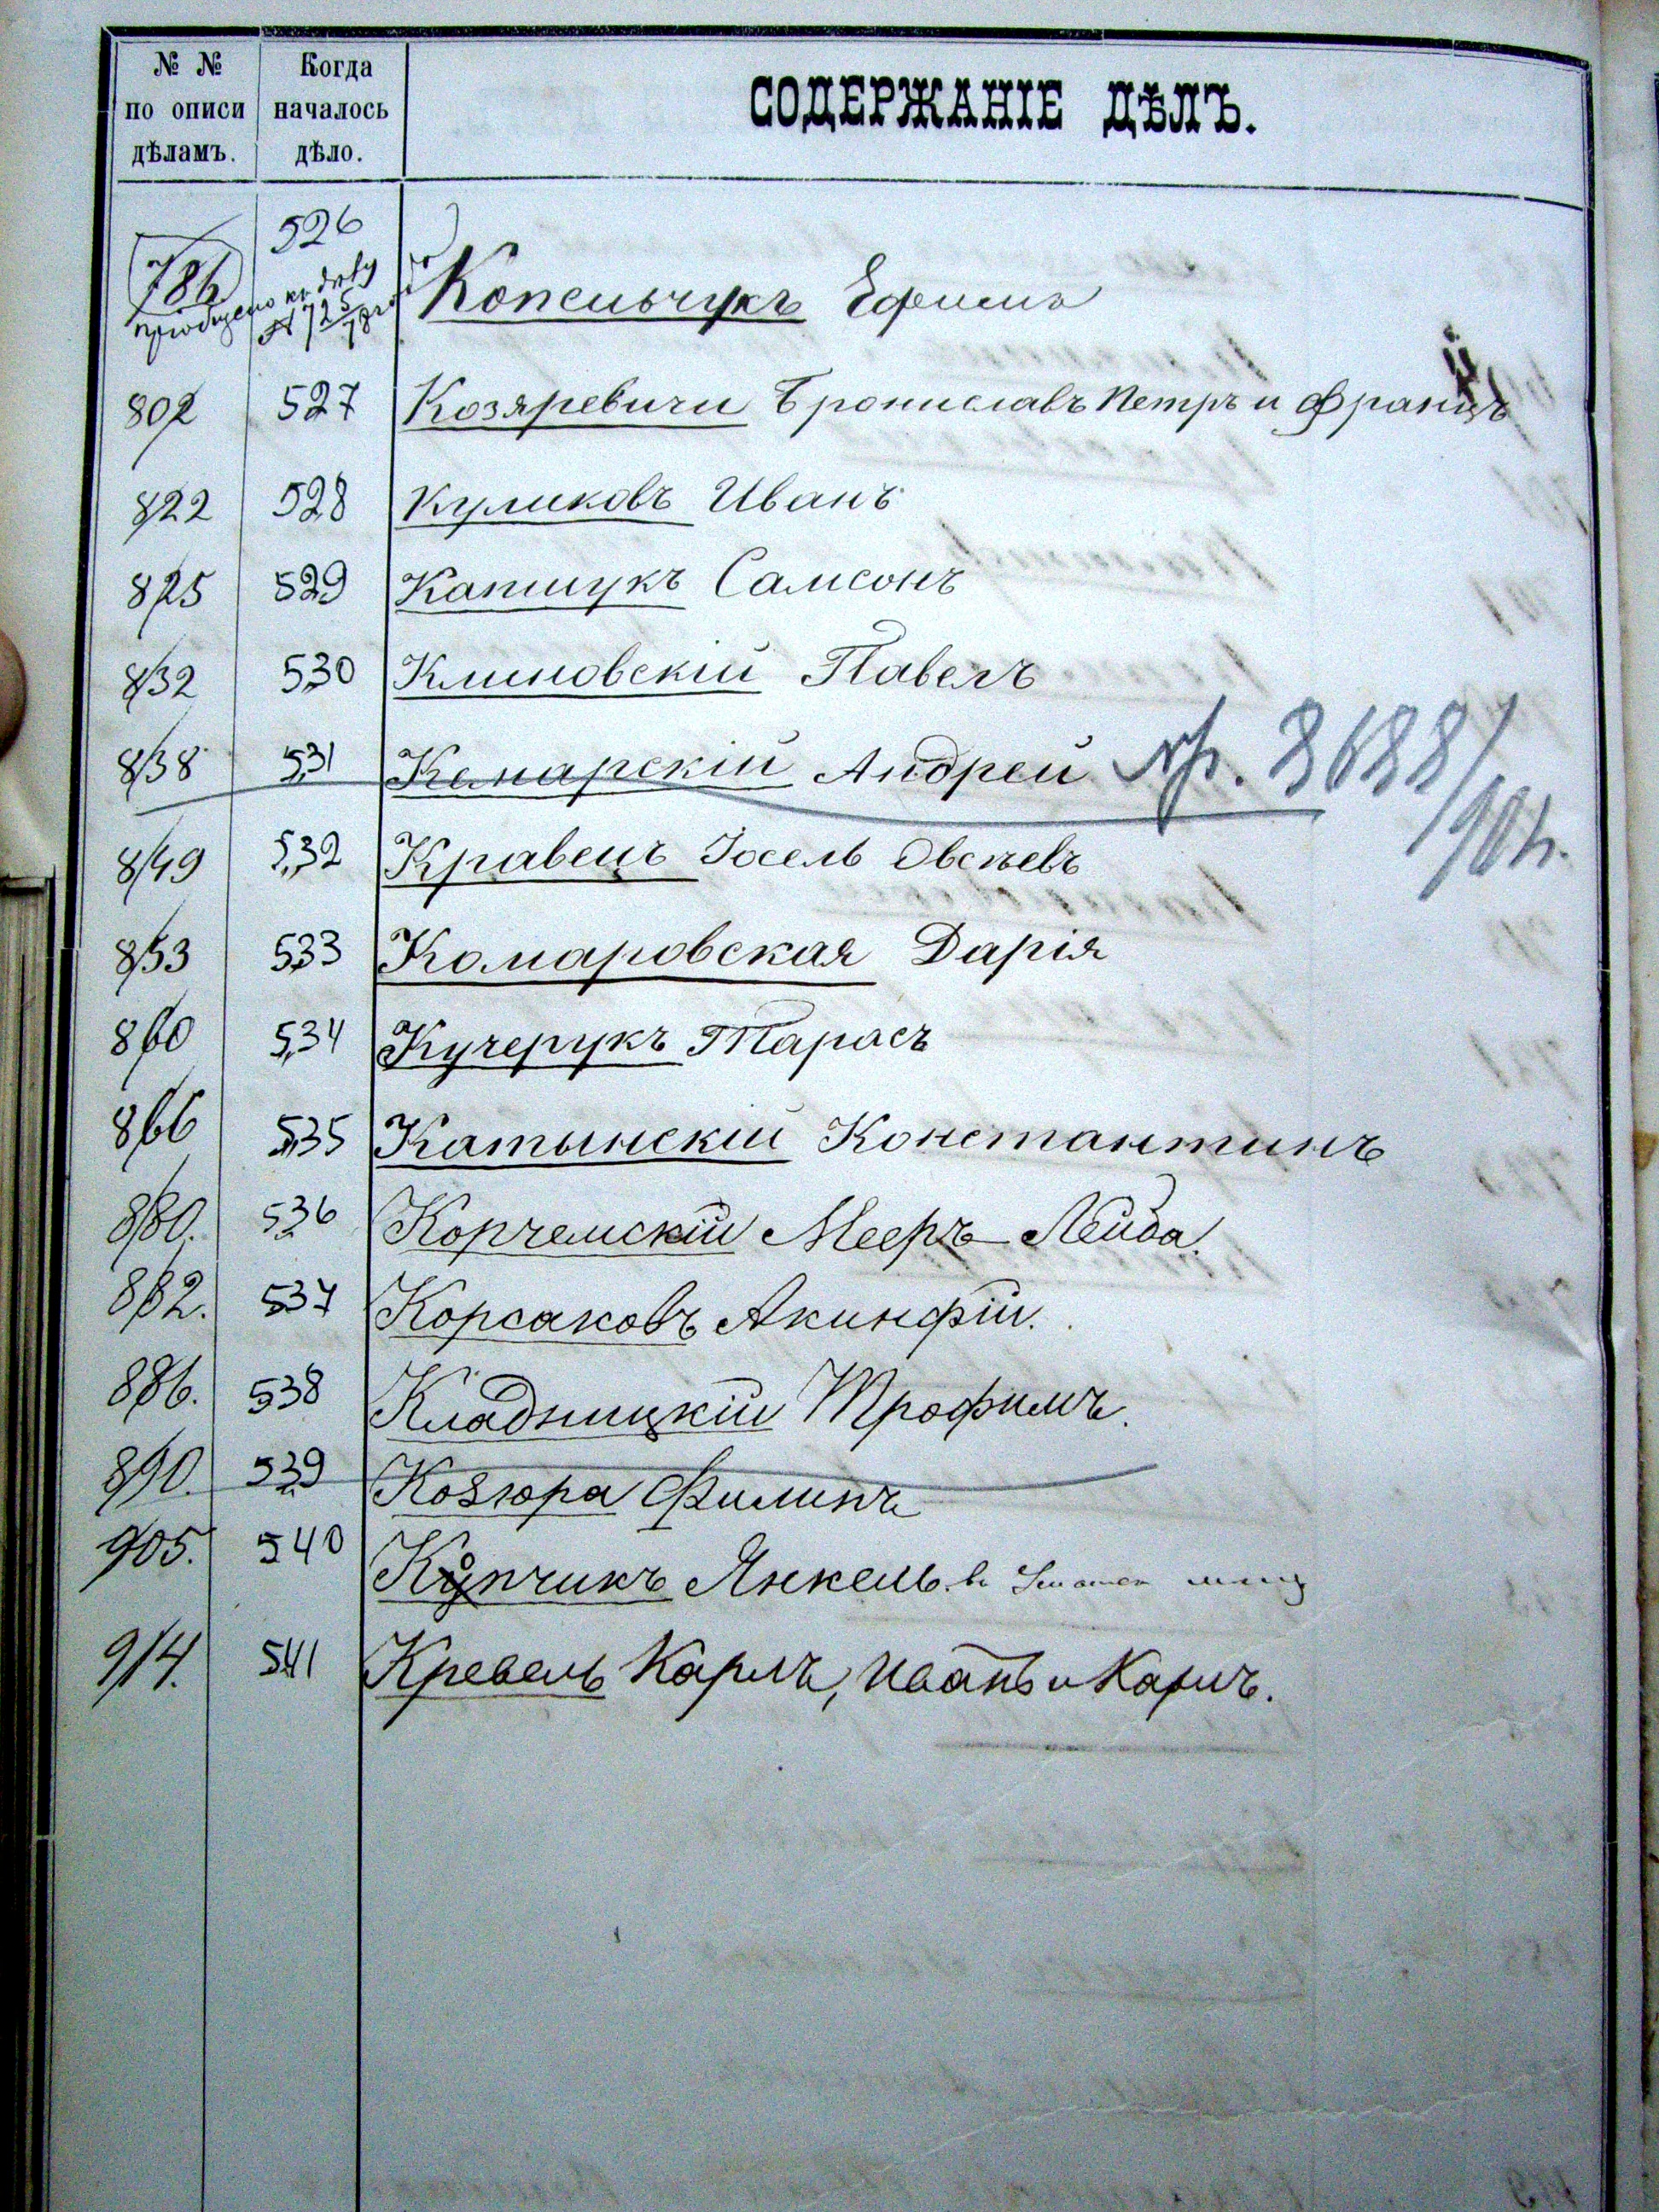 № № по описи дѣламъ.
Когда началось дѣло.
СОДЕРЖАНІЕ ДѢЛЪ.
786 526 Копельчукъ Ефимъ
пріобщено къ дѣлу
№ 725/78
802 527 Козяревичи Брониславъ Петръ и Францъ
822 528 Куликовъ Иванъ
825 529 Капшукъ Самсонъ
832 530 Климовскій Павелъ
838 531 Кемарскій Андрей пр. 3688/904.
849 532 Кравецъ Іосель Овсѣевъ
853 533 Комаровская Дарія
860 534 Кучерукъ Тарасъ
866 535 Катынскій Константинъ
880. 536 Корчемскій Мееръ-Лейба.
882. 537 Корсаковъ Акинфій.
886. 538 Кладницкій Трофимъ.
890. 539 Козюра Филипъ
905. 540 Копчикъ Янкель. въ
914. 541 Кревель Карлъ, Иванъ и Карлъ.